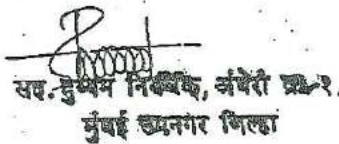 सह. दुय्यम निबंधक, अंधेरी क्र.-२,
मुंबई उपनगर जिल्हा